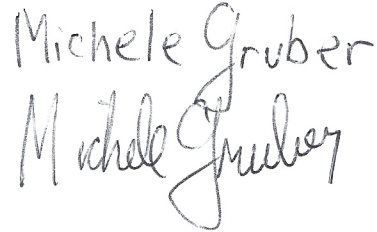 Michele Gruber
Michele Gruber